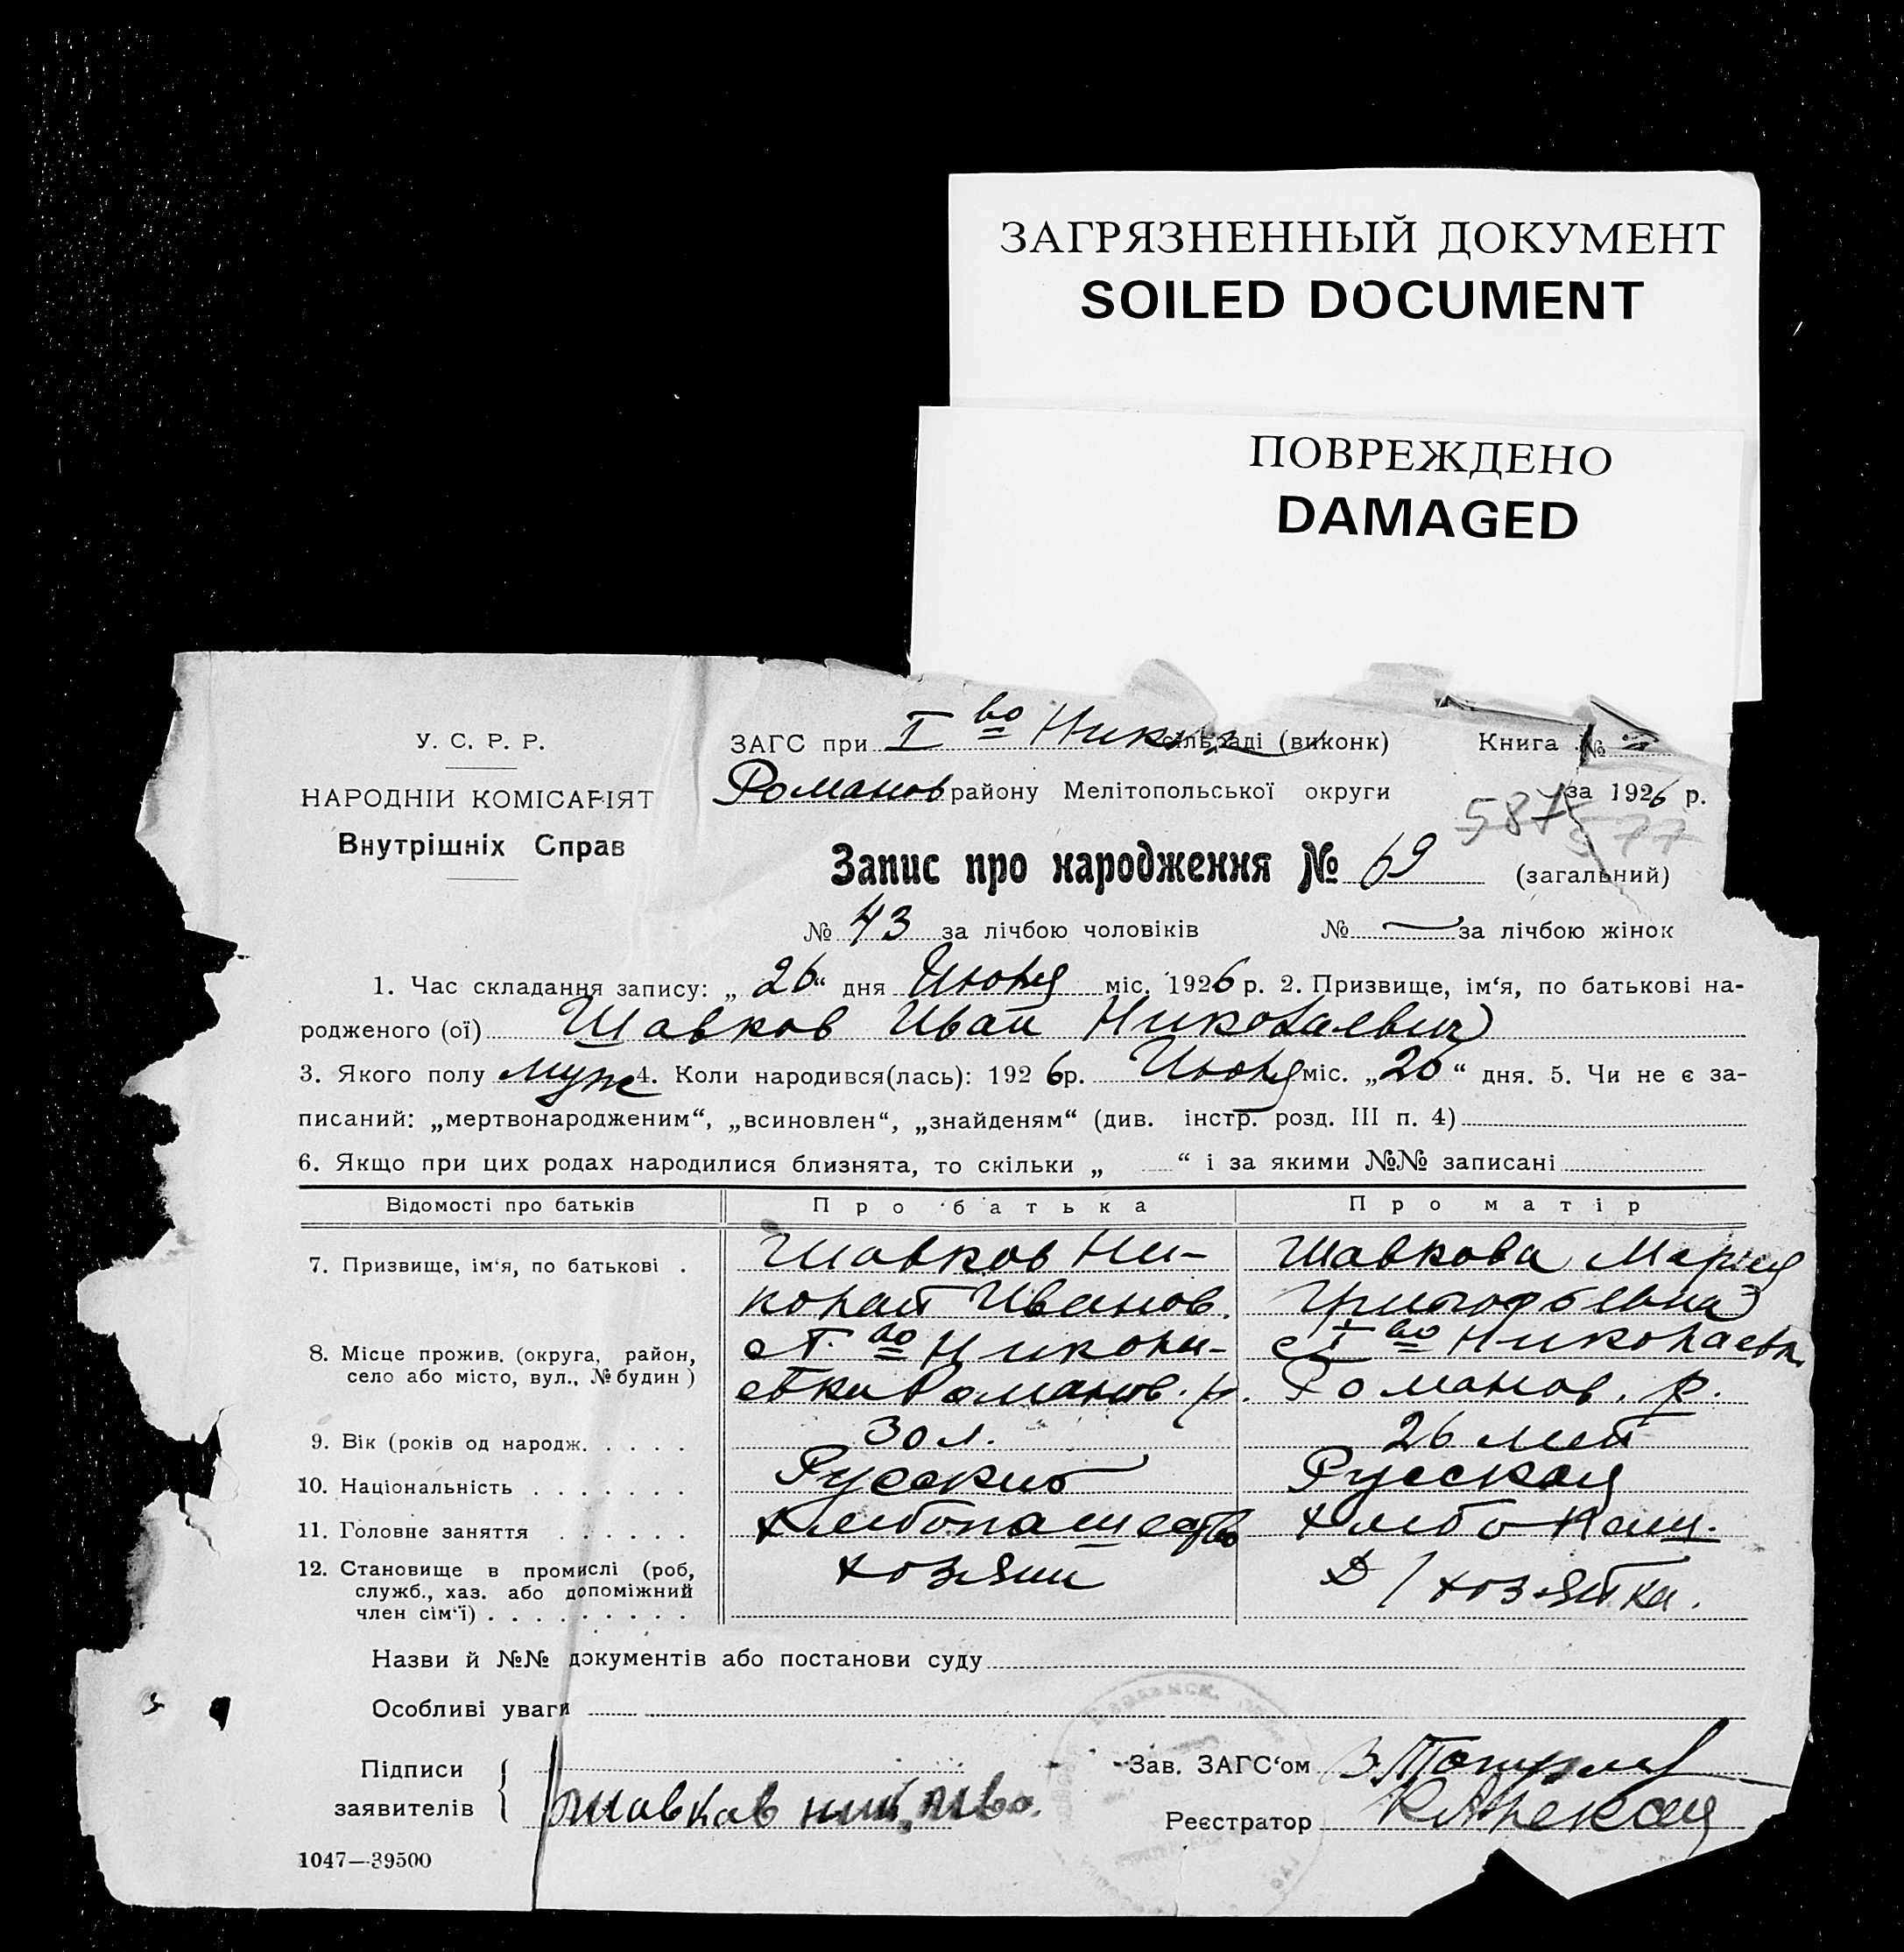 ЗАГРЯЗНЕННЫЙ ДОКУМЕНТ
SOILED DOCUMENT
ПОВРЕЖДЕНО
DAMAGED
У. С. Р. Р.
НАРОДНІЙ КОМІСАРІЯТ
Внутрішніх Справ
ЗАГС при I во Никол сільраді (виконк) Книга №
Романов району Мелітопольської округи за 1926 р.
5875 577
Запис про народження № 69 (загальний)
№ 43 за лічбою чоловіків № — за лічбою жінок
1. Час складання запису: „ 26 “ дня Июня міс. 1926 р. 2. Призвище, ім‘я, по батькові на-
родженого (ої) Шавков Иван Николаевич
3. Якого полу муж 4. Коли народився(лась): 1926 р. Июня міс. „20“ дня. 5. Чи не є за-
писаний: „мертвонародженим“, „всиновлен“, „знайденям“ (див. інстр. розд. III п. 4)
6. Якщо при цих родах народилися близнята, то скільки „ “ і за якими №№ записані
Відомості про батьків Про батька Про матір
7. Призвище, ім‘я, по батькові . Шавков Ни- Шавкова Мария
колай Иванов. Григорьевна
8. Місце прожив. (округа, район, с I. во Никола- с I во Николаевк.
село або місто, вул., № будин) евка Романов. р. Романов. р.
9. Вік (років од народж. . . . . 30 л. 26 лет
10. Національність . . . . . . . Русский Русская
11. Головне заняття . . . . . . Хлебопашество Хлебопаш.
12. Становище в промислі (роб, хозяин Д/хозяйка.
служб., хаз. або допоміжний
член сім‘ї) . . . . . . . . .
Назви й №№ документів або постанови суду
Особливі уваги
Підписи
заявителів Шавков ник. Ива.
Зав. ЗАГС‘ом
Реєстратор
1047—39500